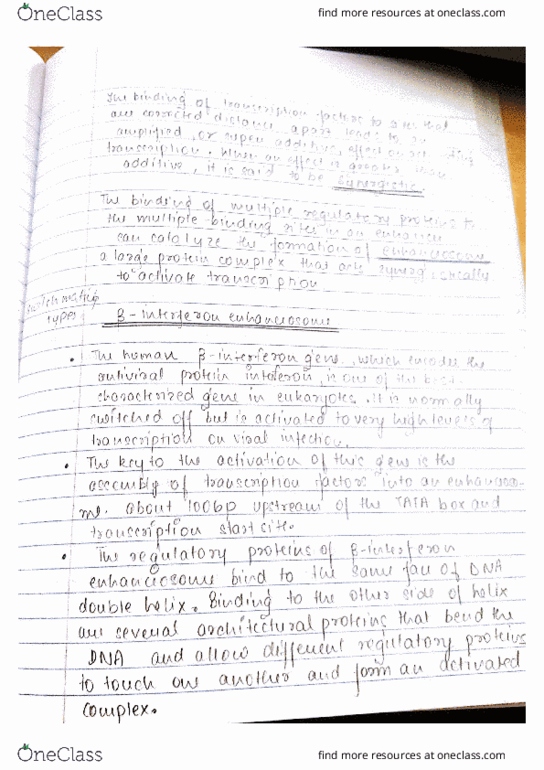 OneClass
find more resources at oneclass.com
The binding of transcription factors to sites that
are corrected distance apart leads to
amplified, or super additive, effect on
transcription. When an effect is greater than
additive, it is said to be synergistic.
The binding of multiple regulatory proteins to
the multiple binding sites in an enhancer
can catalyze the formation of enhanceosome
a large protein complex that acts synergistically
to activate transcription.
types
β - interferon enhanceosome
• The human β-interferon gene, which encodes the
antiviral protein interferon, is one of the best-
characterized gene in eukaryotes. It is normally
switched off but is activated to very high levels of
transcription on viral infection.
• The key to the activation of this gene is the
assembly of transcription factors into an enhanceo-
me. about 100bp upstream of the TATA box and
transcription start site.
• The regulatory proteins of β-interferon
enhanceosome bind to the same face of DNA
double helix. Binding to the other side of helix
are several architectural proteins that bend the
DNA and allow different regulatory proteins
to touch one another and form an activated
complex.
OneClass
find more resources at oneclass.com